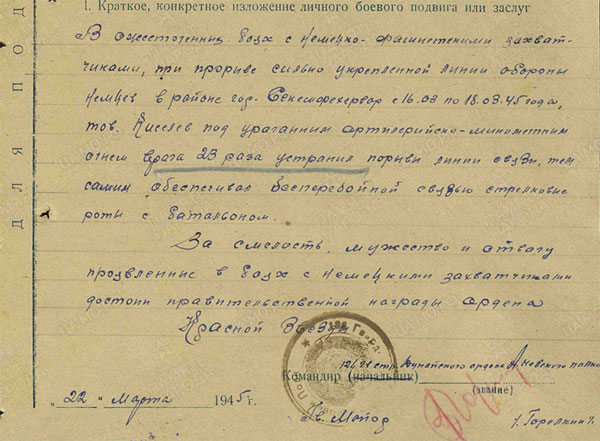 I. Краткое, конкретное изложение личного боевого подвига или заслуг
В ожесточенних боях с немецко-фашистскими захват-
чиками, при прорыве сильно укрепленной линии обороны
немцев в районе гор. Секешфехервар с 16.03 по 18.03.45 года,
тов. Киселев под ураганним артилерийско-минометним
огнем врага 23 раза устранил порывы линии связи, тем
самим обеспечивал бесперебойной связью стрелковие
роты с батальоном.
За смелость, мужество и отвагу
проявленние в боях с немецкими захватчиками
достоин правительственной награды ордена
Красной Звезды
ДЛЯ ПОД
Командир (начальник)
стр. Дунайского ордена А. Невского полка
(звание)
"22" Марта 1945 г.
Гв. Майор